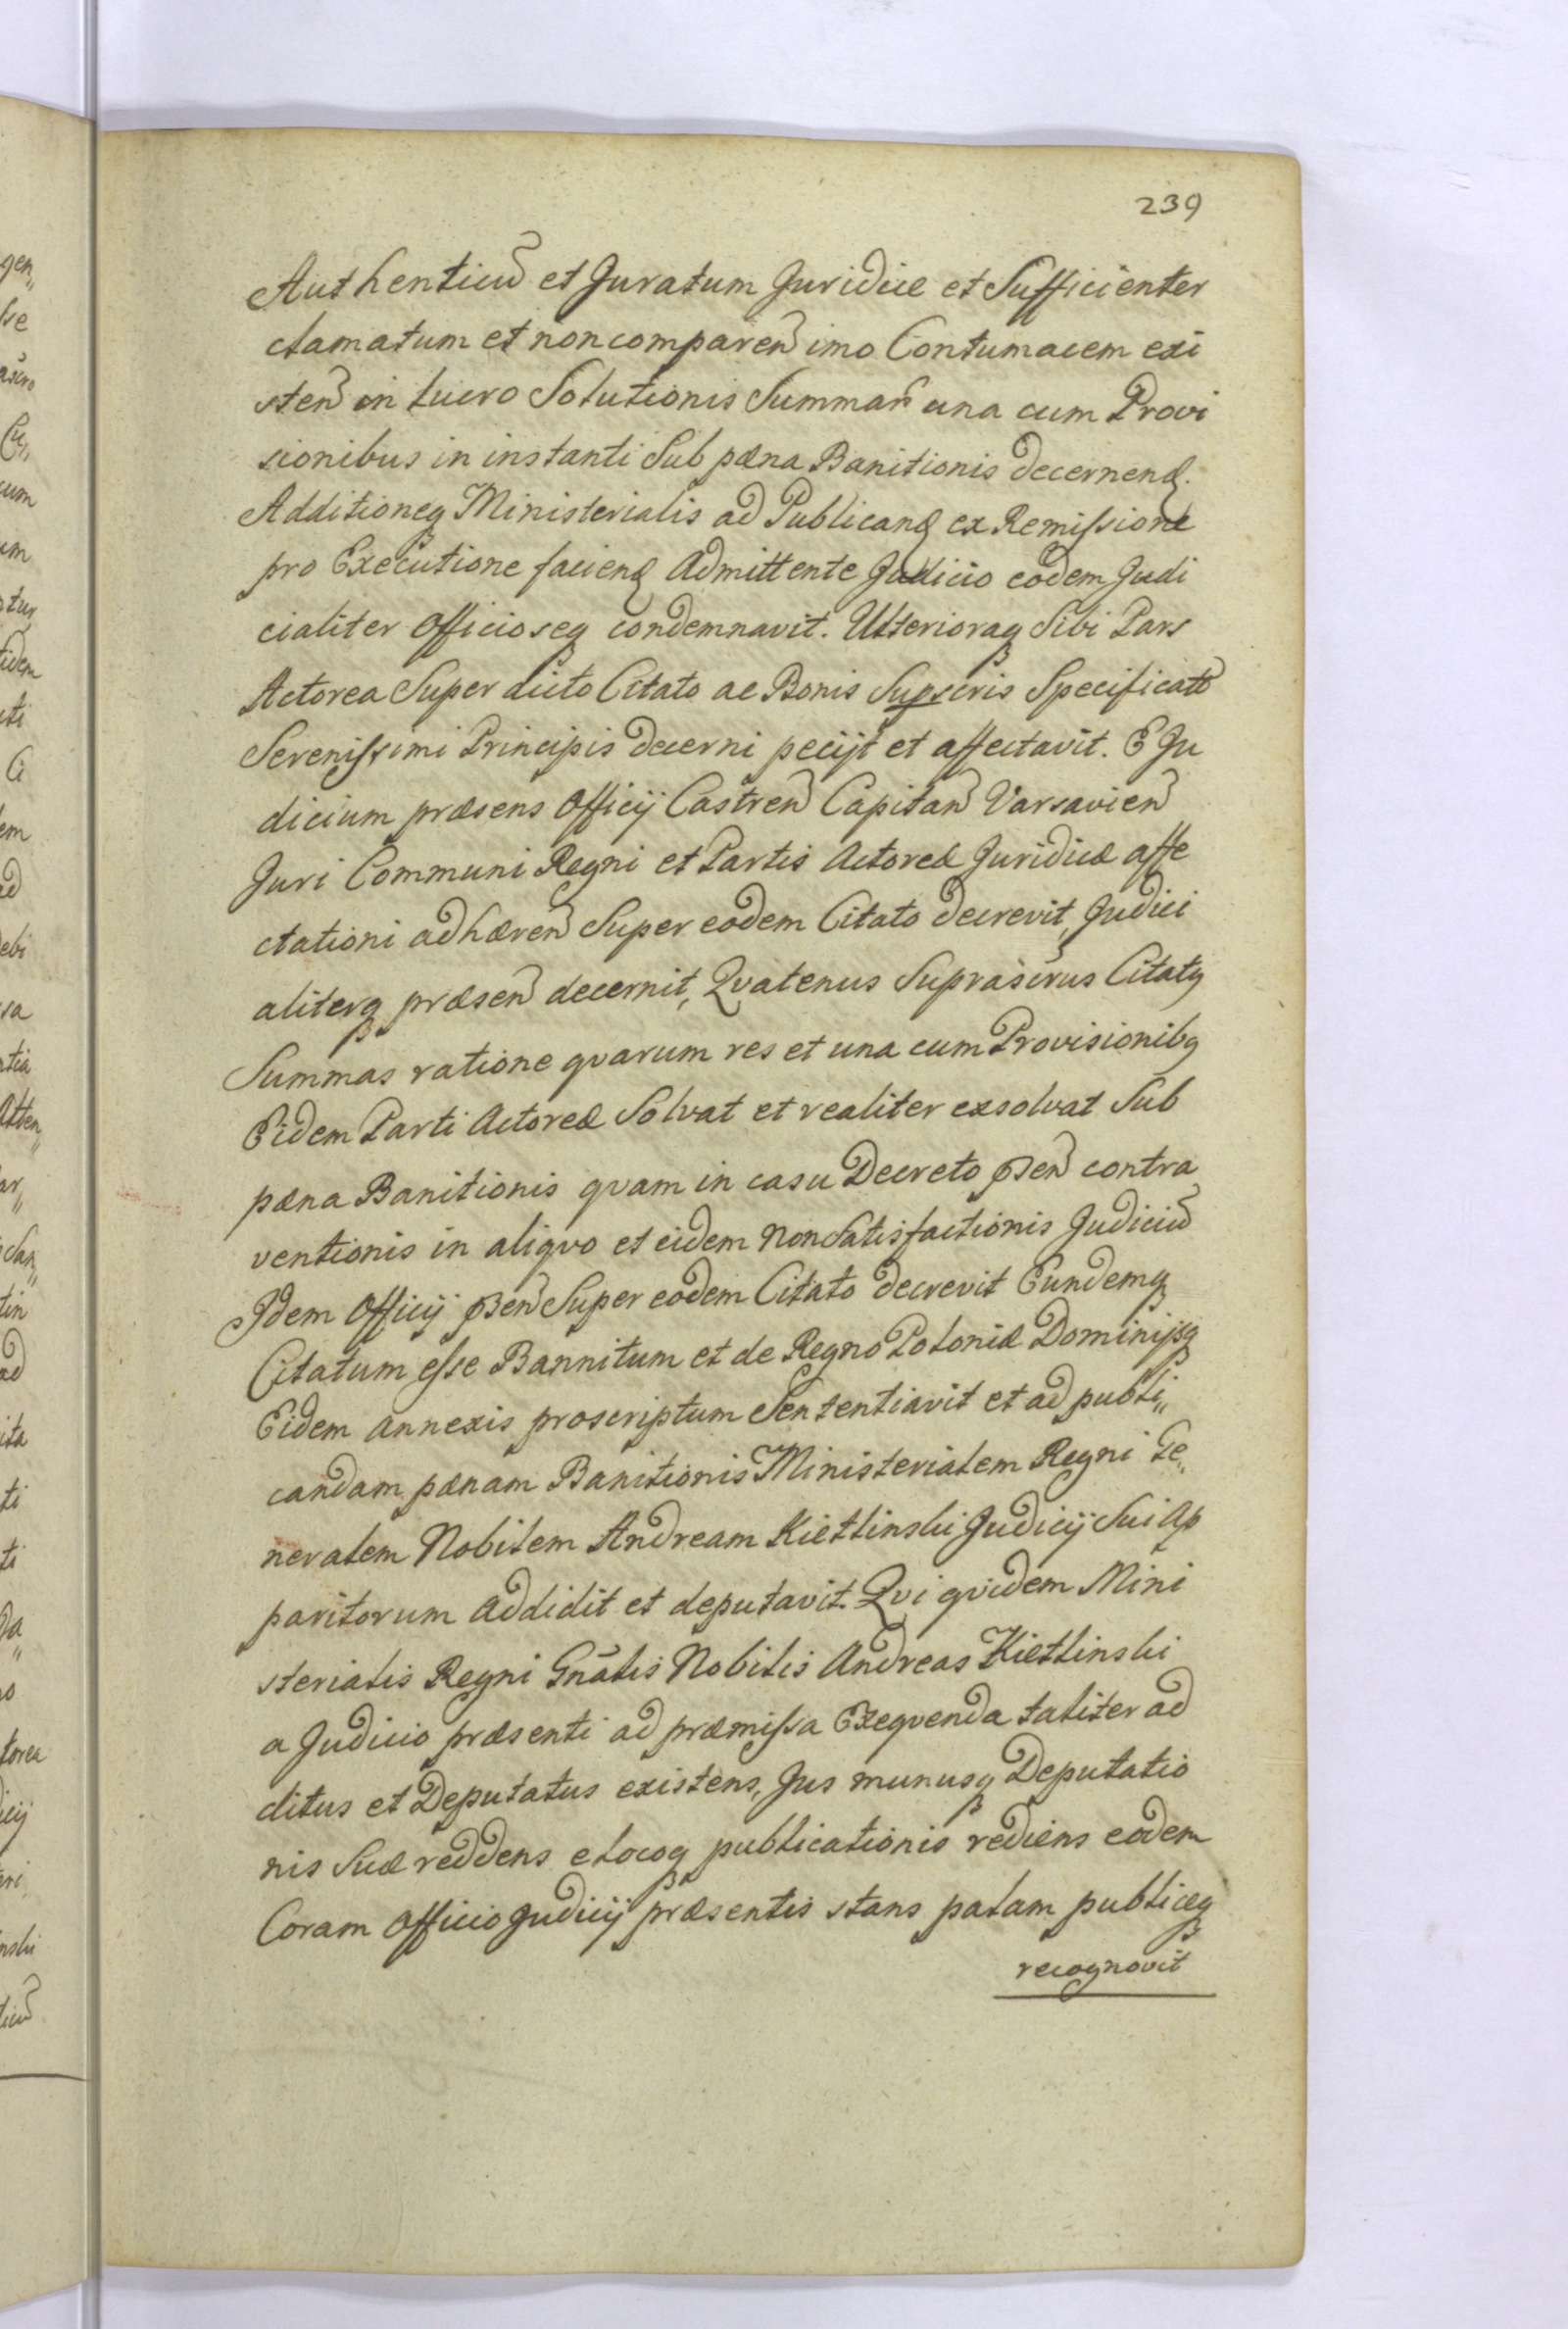 239
Authenticũ et Juratum Juridice et Sufficienter
clamatum et noncomparen̄ imo Contumacem exi
sten̄ in Lucro Solutionis Summar̄ una cum Provi
sionibus in instanti Sub pæna Banitionis decernenꝭ.
Additioneqꝫ Ministerialis ad Publicanꝭ ex Remiſsione
pro Executione facienꝭ Admittente Judicio eodem Judi
cialiter Officioseqꝫ condemnavit. Ulterioraqꝫ Sibi Pars
Actorea Super dicto Citato ac Bonis Supscris Specificatꝭ
Sereniſsimi Principis decerni pecijt et affectavit. E Ju
dicium præsens Officij Castren̄ Capitan̄ Varsavien̄
Juri Communi Regni et Partis Actoreæ Juridicæ affe
ctationi adhæren̄ Super eodem Citato decrevit, Judici
aliterqꝫ præsen̄ decernit, Qvatenus Suprascrus Citatꝯ
Summas ratione qvarum res et una cum Provisionibꝯ
Eidem Parti Actoreæ Solvat et realiter exsolvat Sub
pæna Banitionis qvam in casu Decreto p̃sen̄ contra
ventionis in aliqvo et eidem nonSatisfactionis Judiciũ
Idem Officij p̃sen̄ Super eodem Citato decrevit Eundemqꝫ
Citatum eſse Bannitum et de Regno Poloniæ Dominijsqꝫ
Eidem annexis proscriptum Sententiavit et ad publi„
candam pænam Banitionis Ministerialem Regni Ge„
neralem Nobilem Andream Kietlinski Judicij Sui Ap
paritorum addidit et deputavit. Qvi qvidem Mini
sterialis Regni Gn̄alis Nobilis Andreas Kietlinski
a Judicio præsenti ad præmiſsa Exeqvenda taliter ad
ditus et Deputatus existens, Jus munusqꝫ Deputatio
nis Suæ reddens e locoqꝫ publicationis rediens eodem
Coram Officio Judicij præsentis stans palam publiceqꝫ
recognovit